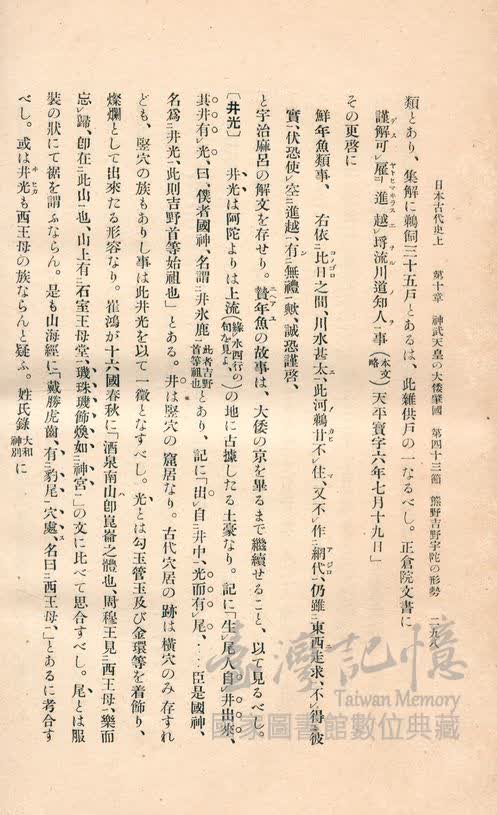 日本古代史上　第十章　神武天皇の大倭肇國　第四十三節　熊野吉野宇陀の形勢　二九八
類とあり、集解に鵜飼三十五戸とあるは、此雜供戸の一なるべし。正倉院文書に
謹解可レ雇進越レ埒流川道知人事（本文略）天平寶字六年七月十九日」
その更啓に
鮮年魚類事、　右依二比日之間、川水甚太一、此河鵜甘不レ仕、又不レ作二網代一、仍雖二東西走求一、不レ得二彼
實一、伏恐使レ空二進越一、有二無禮一歟、誠恐謹啓、
と宇治麻呂の解文を存せり。贄年魚の故事は、大倭の京を畢るまで繼續せること、以て見るべし。
〔井光〕　井光は阿陀よりは上流（緣レ水西行の句を見よ、）の地に古據したる土豪なり。記に「生レ尾人自レ井出來、
其井有レ光、曰、僕者國神、名謂二井氷鹿一」此者吉野首等祖也とあり、記に「出レ自二井中一、光而有レ尾、‥‥臣是國神、
名爲二井光一、此則吉野首等始祖也」とある。井は竪穴の窟居なり。古代穴居の跡は横穴のみ存すれ
ども、竪穴の族もありし事は此井光を以て一徵となすべし。光とは勾玉管玉及び金環等を着飾り、
燦爛として出來たる形容なり。崔鴻が十六國春秋に「酒泉南山卽崑崙之體也、周穆王見二西王母一、樂而
忘レ歸、卽在二此山一也、山上有二石室王母堂一、璣珠璣飾煥如二神宮一」の文に比べて思合すべし。尾とは服
裝の狀にて裾を謂ふならん。是も山海經に「戴勝虎齒、有二豹尾一穴處、名曰二西王母一、」とあるに考合す
べし。或は井光も西王母の族ならんと疑ふ。姓氏錄大和神別に
臺灣記憶
Taiwan Memory
國家圖書館數位典藏